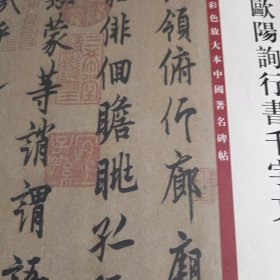 歐陽詢行書千字文
彩色放大本中國著名碑帖
領俯仰廊廟
徘徊瞻眺孤
蒙等誚謂語
乎